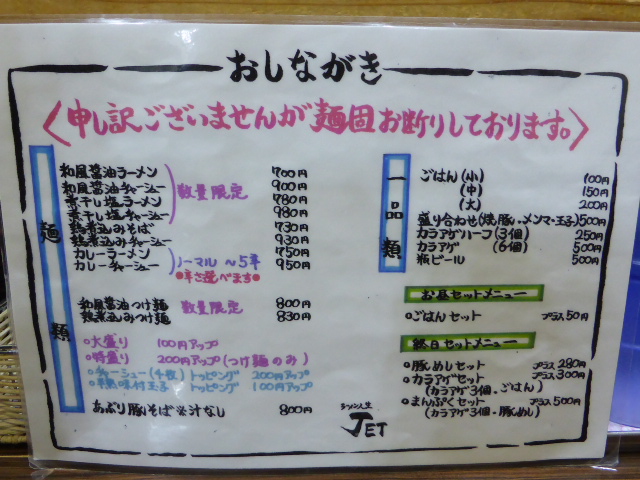 おしながき
〈申し訳ございませんが麺固お断りしております。〉
麺類
和風醤油ラーメン 700円
和風醤油チャーシュー 900円
煮干し塩ラーメン 780円
煮干し塩チャーシュー 980円
数量限定
鶏煮込みそば 730円
鶏煮込みチャーシュー 930円
カレーラーメン 750円
カレーチャーシュー 950円
ノーマル〜5辛
●辛さ選べまち●
和風醤油つけ麺 800円
鶏煮込みつけ麺 830円
数量限定
○大盛り 100円アップ
○特盛り 200円アップ(つけ麺のみ)
○チャーシュー(4枚)トッピング 200円アップ
○半熟味付玉子 トッピング 100円アップ
あぶり豚そば※汁なし 800円
一品類
ごはん(小) 100円
(中) 150円
(大) 200円
盛り合わせ(焼豚・メンマ・玉子) 500円
カラアゲハーフ(3個) 250円
カラアゲ (6個) 500円
瓶ビール 500円
お昼セットメニュー
○ごはんセット プラス50円
終日セットメニュー
○豚めしセット プラス280円
○カラアゲセット プラス300円
(カラアゲ3個・ごはん)
○まんぷくセット プラス500円
(カラアゲ3個・豚めし)
ラーメン人生
JET